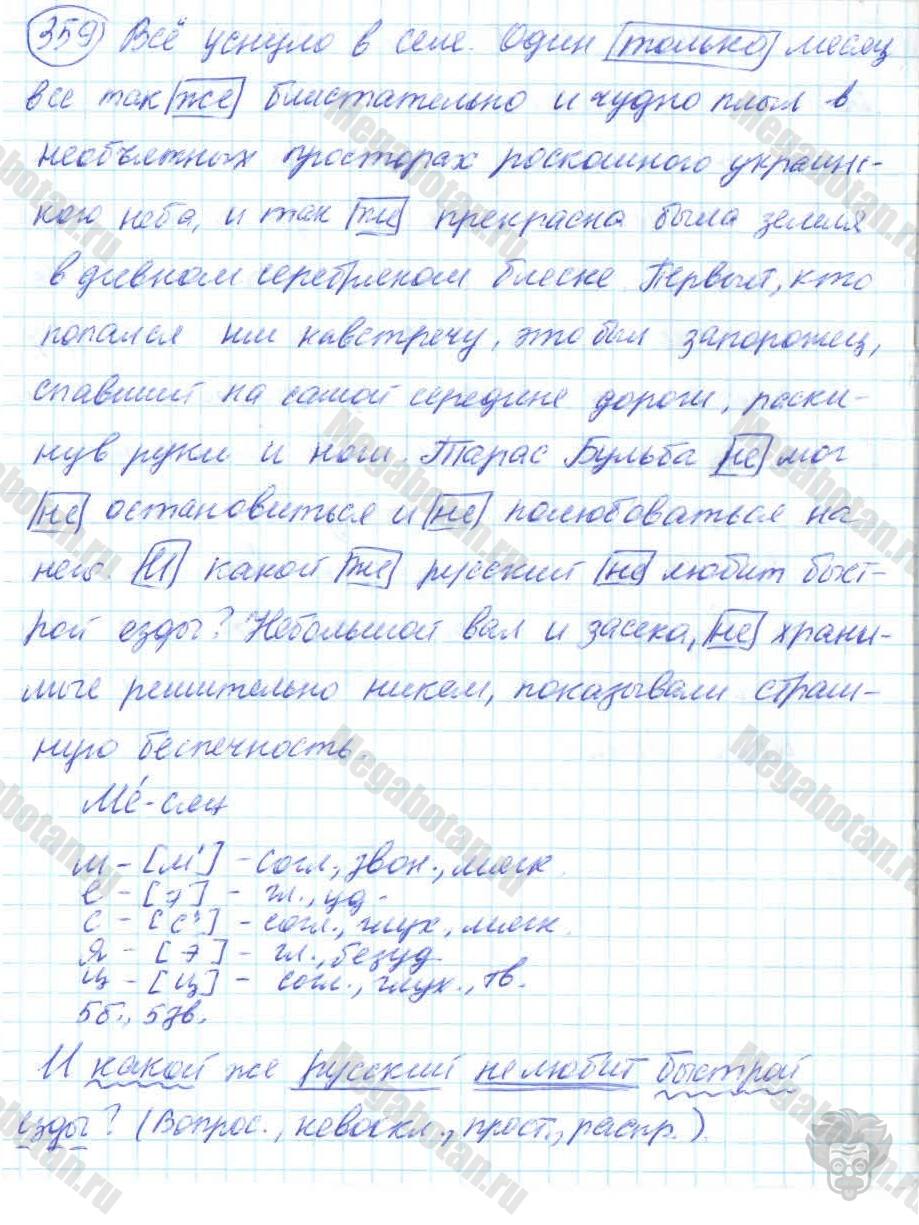 359 Всё уснуло в селе. Один только месяц
все так же блистательно и чудно плыл в
необъятных просторах роскошного украинс-
кого неба, и так же прекрасна была земля
в дивном серебряном блеске. Первый, кто
попался им навстречу, это был запорожец,
спавший на самой середине дороги, раски-
нув руки и ноги. Тарас Бульба не мог
не остановиться и не полюбоваться на
него. И какой же русский не любит быст-
рой езды? Небольшой вал и засека, не храни-
мые решительно никем, показывали страш-
ную беспечность.
Ме́-сяц
м – [м'] – согл., звон., мягк.
е – [э] – гл., уд.
с – [с'] – согл., глух., мягк.
я – [э] – гл., безуд.
ц – [ц] – согл., глух., тв.
5 б., 5 зв.
И какой же русский не любит быстрой
езды? (Вопрос., невоскл., прост., распр.).
Megabotan.ru